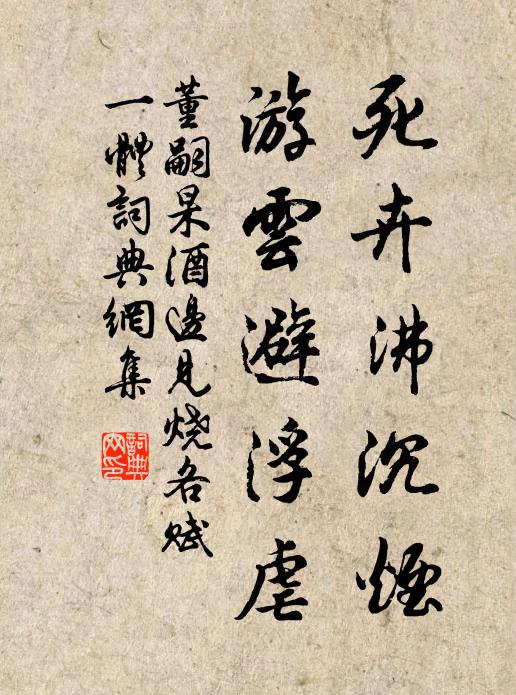 死卉沸沉煙
游雲避浮虐
董嗣杲酒邊見燒各賦
一體詞典網集
詞典網印